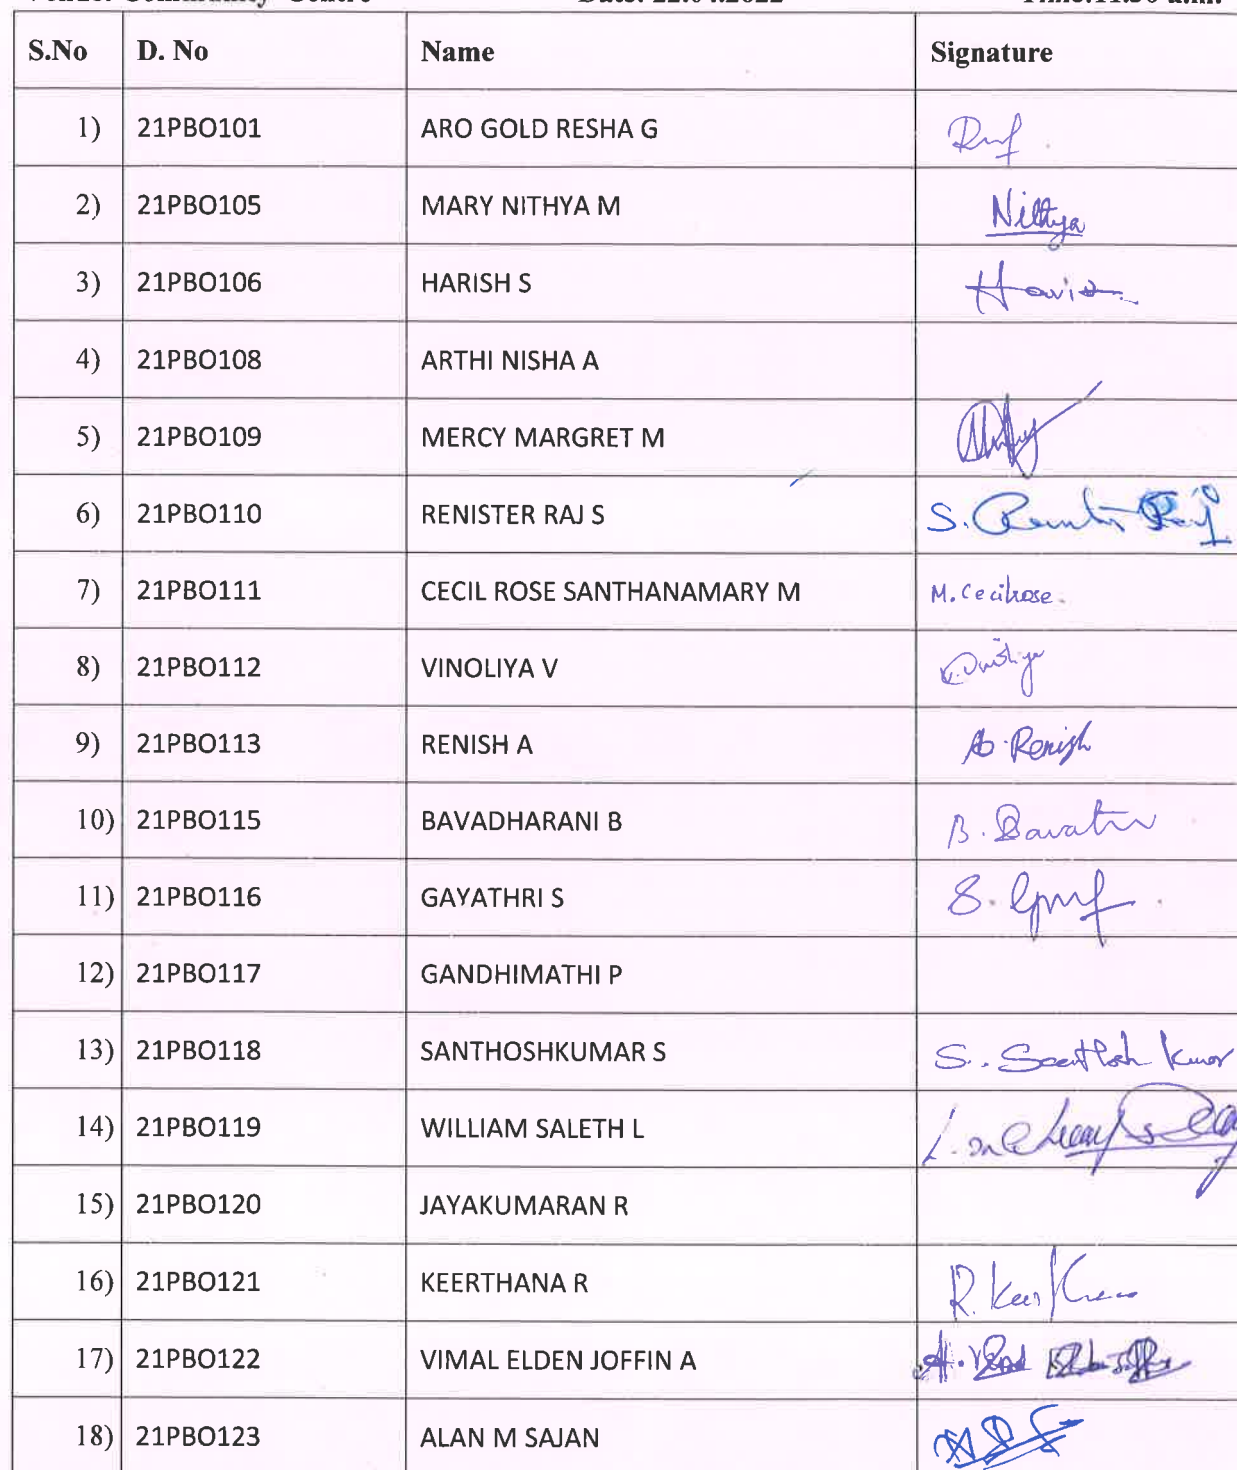 S.No D. No Name Signature
1) 21PBO101 ARO GOLD RESHA G
2) 21PBO105 MARY NITHYA M Nithya
3) 21PBO106 HARISH S Harish
4) 21PBO108 ARTHI NISHA A
5) 21PBO109 MERCY MARGRET M
6) 21PBO110 RENISTER RAJ S S. Renister Raj
7) 21PBO111 CECIL ROSE SANTHANAMARY M M. Cecilrose.
8) 21PBO112 VINOLIYA V
9) 21PBO113 RENISH A A. Renish
10) 21PBO115 BAVADHARANI B B.
11) 21PBO116 GAYATHRI S S.
12) 21PBO117 GANDHIMATHI P
13) 21PBO118 SANTHOSHKUMAR S S. Santhosh Kumar
14) 21PBO119 WILLIAM SALETH L L.
15) 21PBO120 JAYAKUMARAN R
16) 21PBO121 KEERTHANA R R. Keerthana
17) 21PBO122 VIMAL ELDEN JOFFIN A A.
18) 21PBO123 ALAN M SAJAN